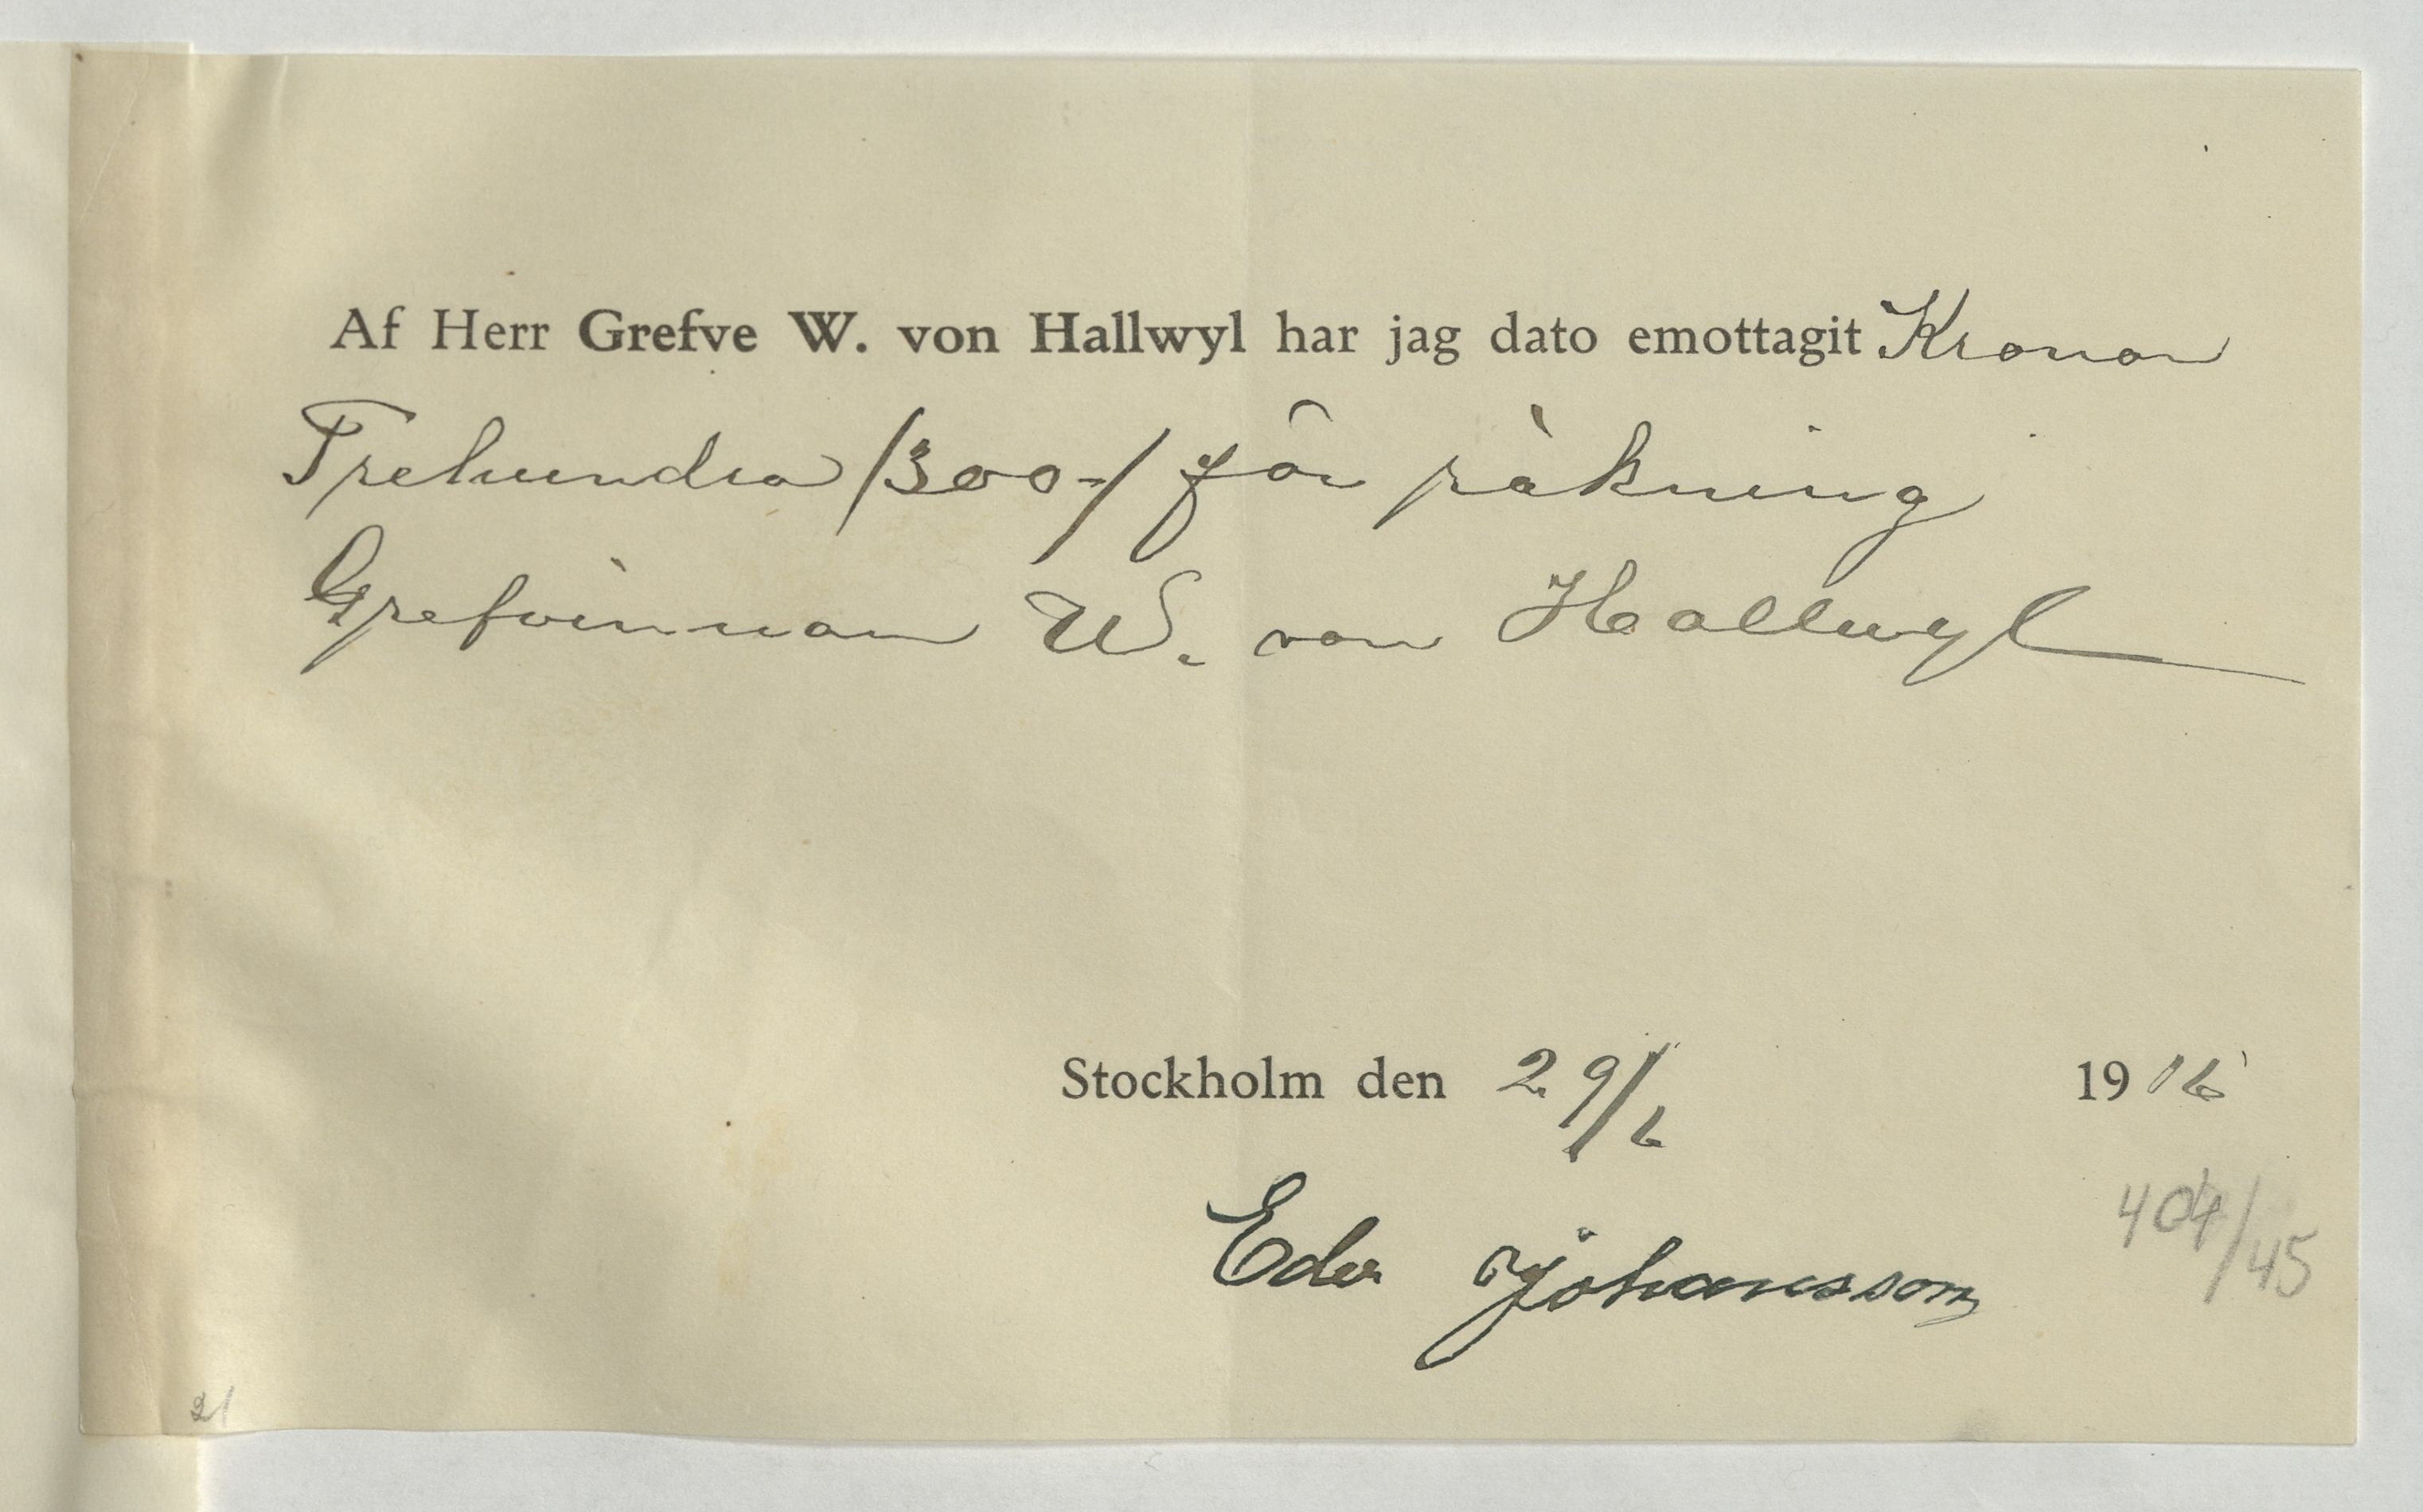 Af Herr Grefve W. von Hallwyl har jag dato emottagit Kronor
Trehundra /300-/ för räkning
Grefvinnan W. von Hallwyl
Stockholm den 29/6 1916
Eder Johansson
404/45
21